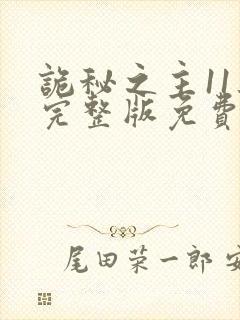 詭秘之主11
完整版免費
尾田荣一郎